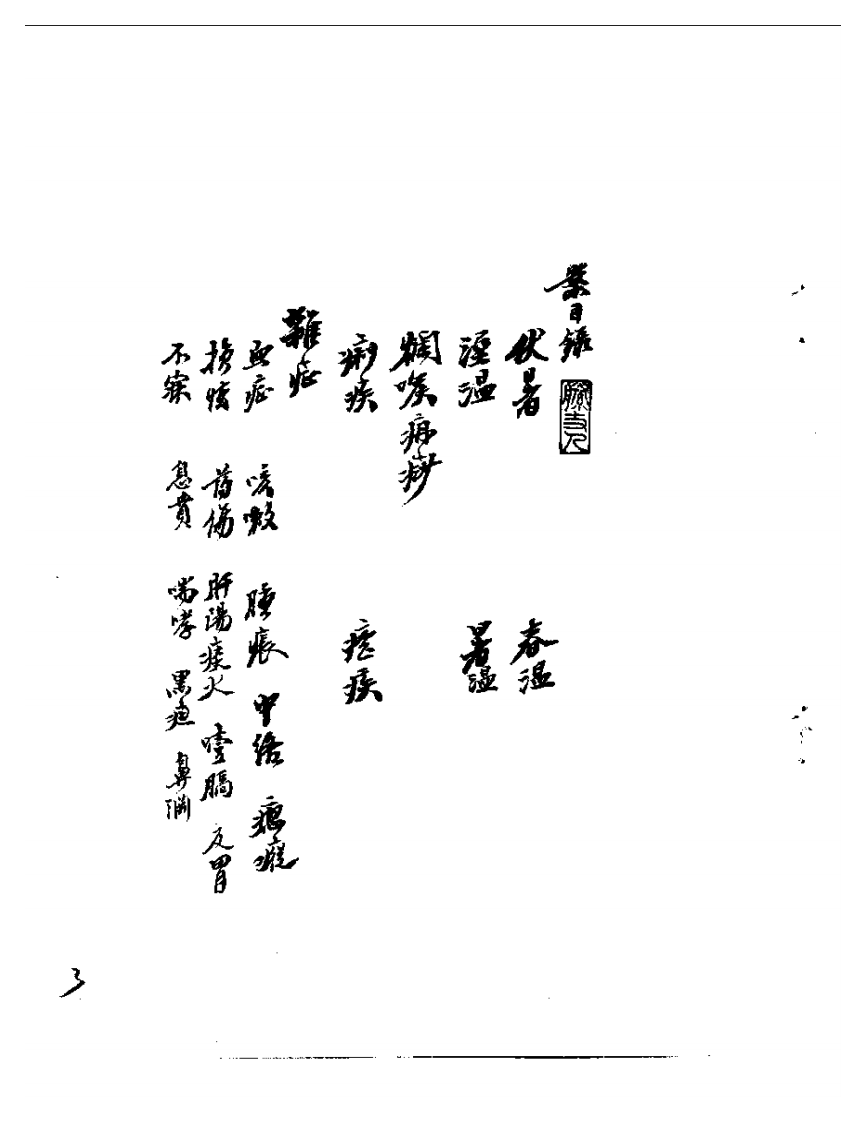 案目錄
伏暑 春温
溼温 暑温
爛喉痧疹
痢疾 瘧疾
雜症
血症 咳嗽 腫脹 中絡 瘋癡
損怯 胃傷 肝陽痰火 噎膈 反胃
不寐 息賁 喘哮 黑疸 鼻淵
3